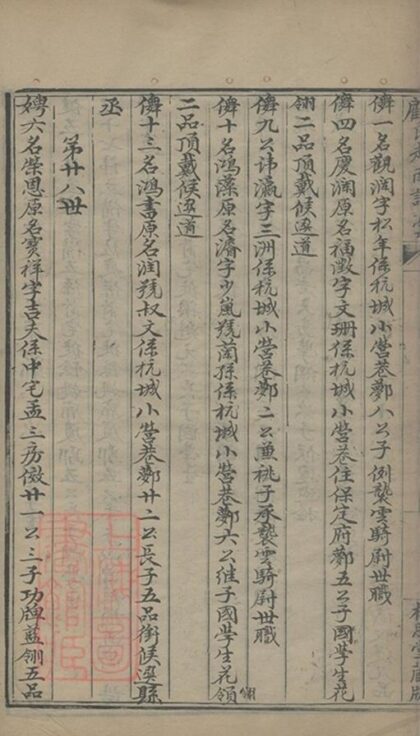 儕一名觀潤字松年係杭城小營巷鄭八公子例襲雲騎尉世職
儕四名慶潤原名福澂字文珊係杭城小營巷住保定府鄭五公子國學生花
翎二品頂戴候選道
儕九公諱瀛字三洲係杭城小營巷鄭二公兼祧子承襲雲騎尉世職
儕十名鴻藻原名濬字少嵐號蘭孫係杭城小營巷鄭六公继子國學生花領
翎
二品頂戴候選道
儕十三名鴻書原名潤號叔文係杭城小營巷鄭廿二公長子五品銜候選縣
丞
第廿八世
娉六名榮恩原名寶祥字吉夫係中宅孟三房儆廿一公三子功牌藍翎五品